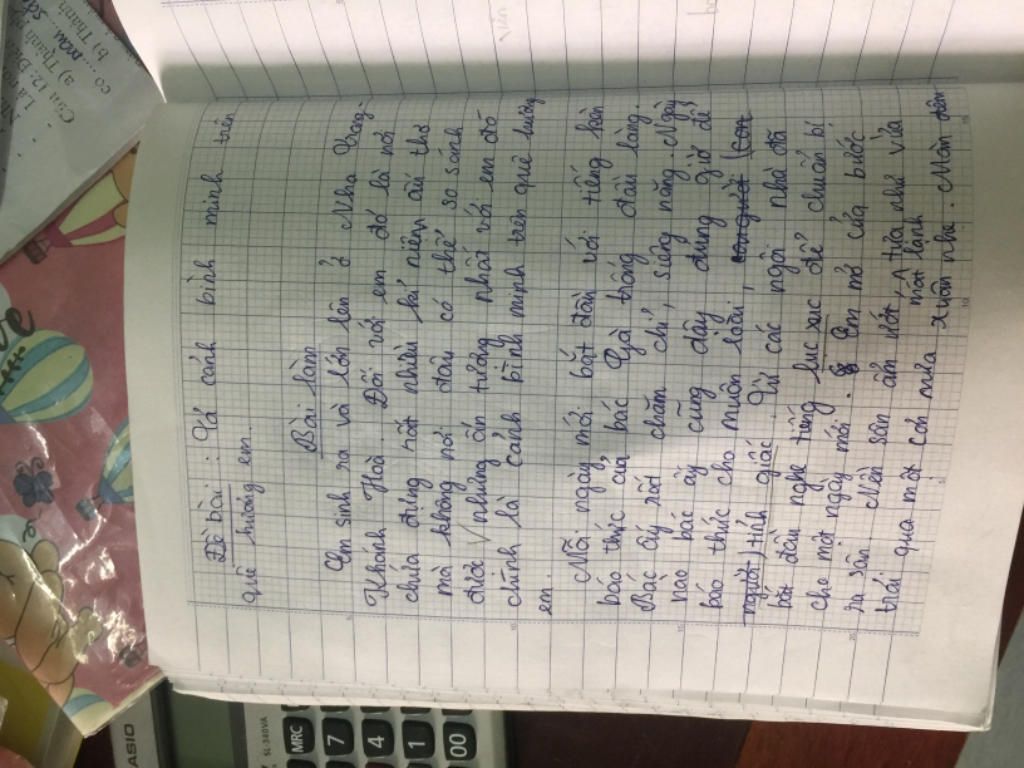 Đề bài : Tả cảnh bình minh trên
quê hương em.
Bài làm
Em sinh ra và lớn lên ở Nha Trang-
Khánh Hoà. Đối với em đó là nơi
chứa đựng rất nhiều kỉ niệm ấu thơ
mà không nơi đâu có thể so sánh
được √ những ấn tượng nhất với em đó
chính là cảnh bình minh trên quê hương
em.
Mỗi ngày mới bắt đầu với tiếng kèn
báo thức của bác Gà trống đầu làng.
Bác ấy rất chăm chỉ, siêng năng. Ngày
nào bác ấy cũng dậy đúng giờ để
báo thức cho muôn loài, con người (con
người) tỉnh giấc. Từ các ngôi nhà đã
bắt đầu nghe tiếng lục xục để chuẩn bị
cho một ngày mới. Em mở cửa bước
ra sân. Nền sân ẩm ướt, tựa như vừa
trải qua một cơn mưa xuân nhẹ. Màn đêm
A một lành
CASIO
SL-340VA
MRC
7
4
1
00
Câu 12. Điền
a) Thành
b) Thành
có
màu